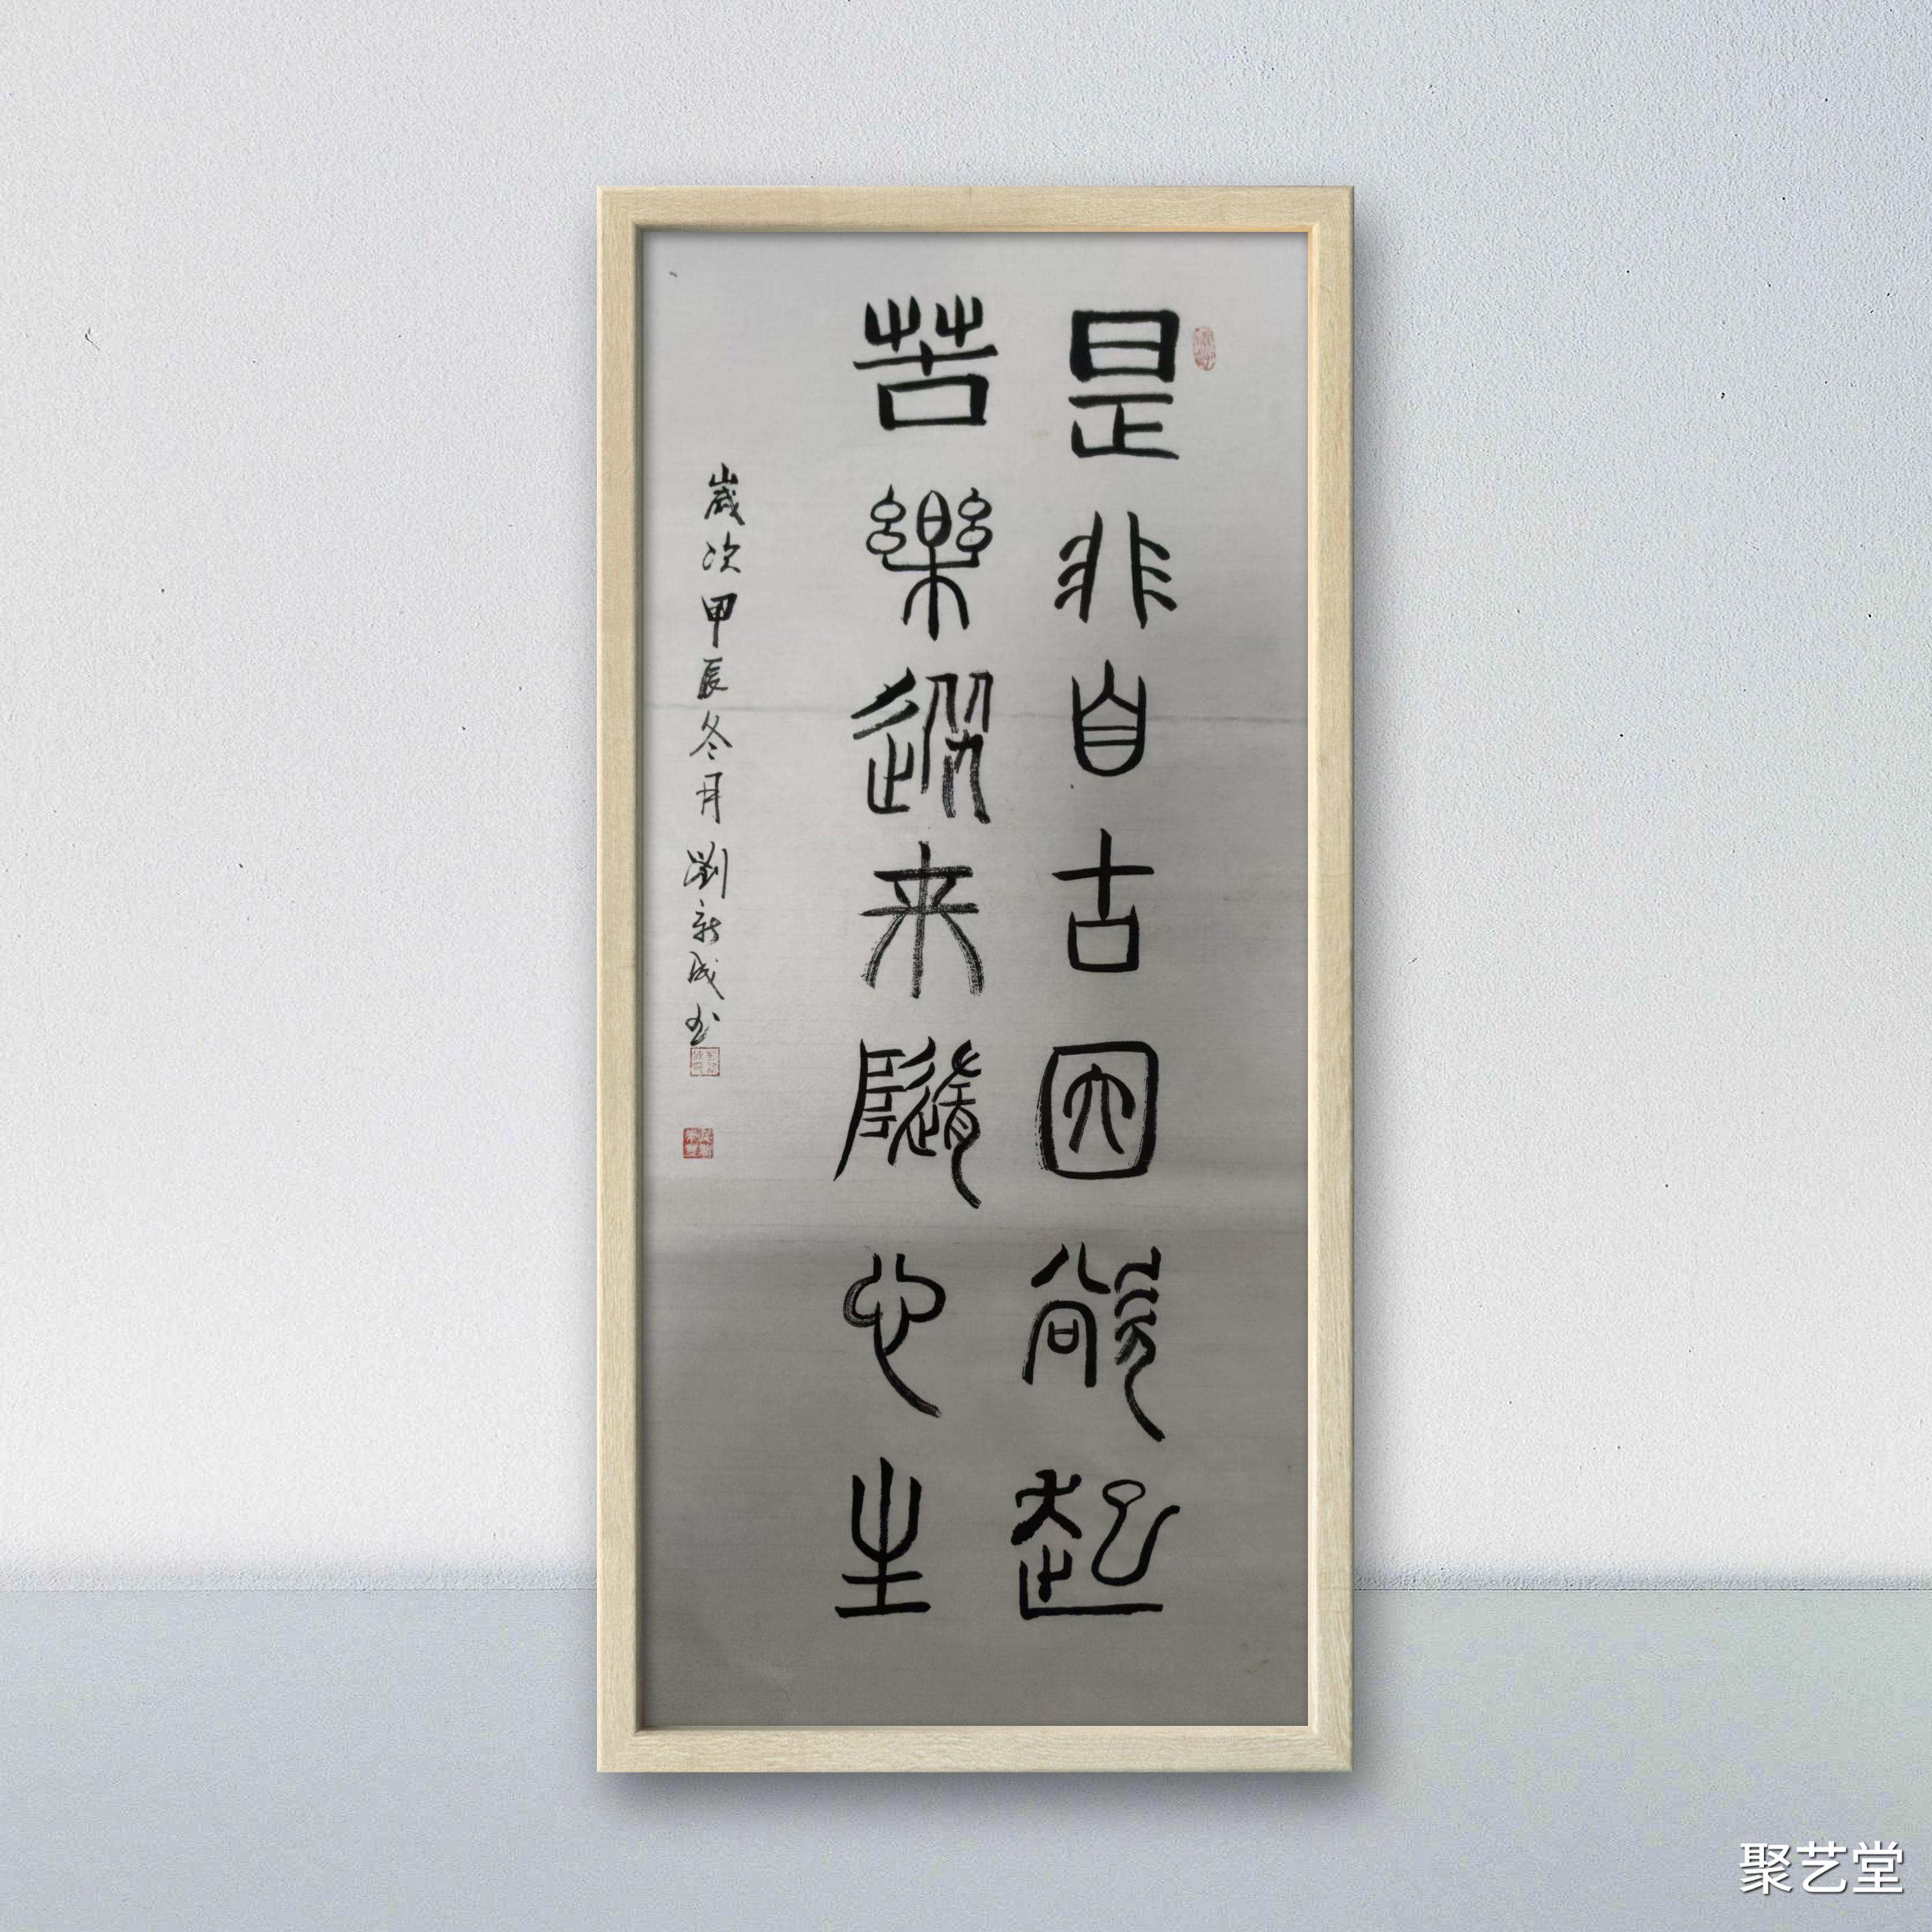 是非自古因欲起
苦樂從来隨心生
歲次甲辰冬月劉新成书
聚艺堂